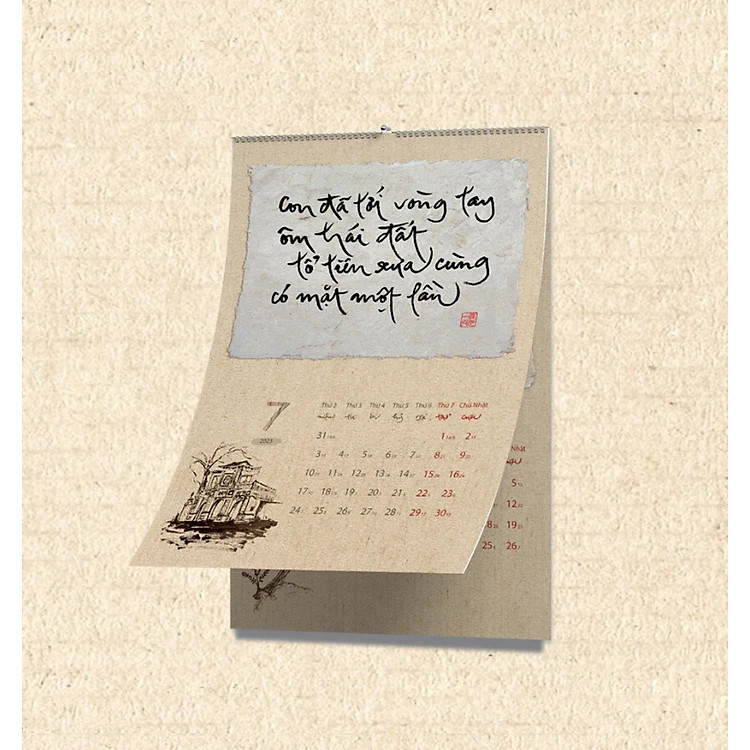 Con đã tới vòng tay
ôm trái đất
tổ tiên xưa cùng
có mặt một lần
7
2023
Thứ 2 Thứ 3 Thứ 4 Thứ 5 Thứ 6 Thứ 7 Chủ Nhật
31 1 2
3 4 5 6 7 8 9
10 11 12 13 14 15 16
17 18 19 20 21 22 23
24 25 26 27 28 29 30
Nhật
5
12
18 19
25 26